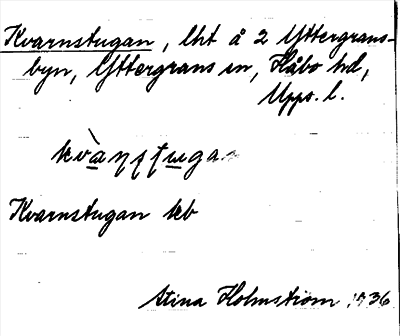 Kvarnstugan, lht å 2 Yttergrans-
byn, Yttergrans sn, Håbo hd,
Upps. l.
Kvarnstugan kb
Stina Holmström 1936